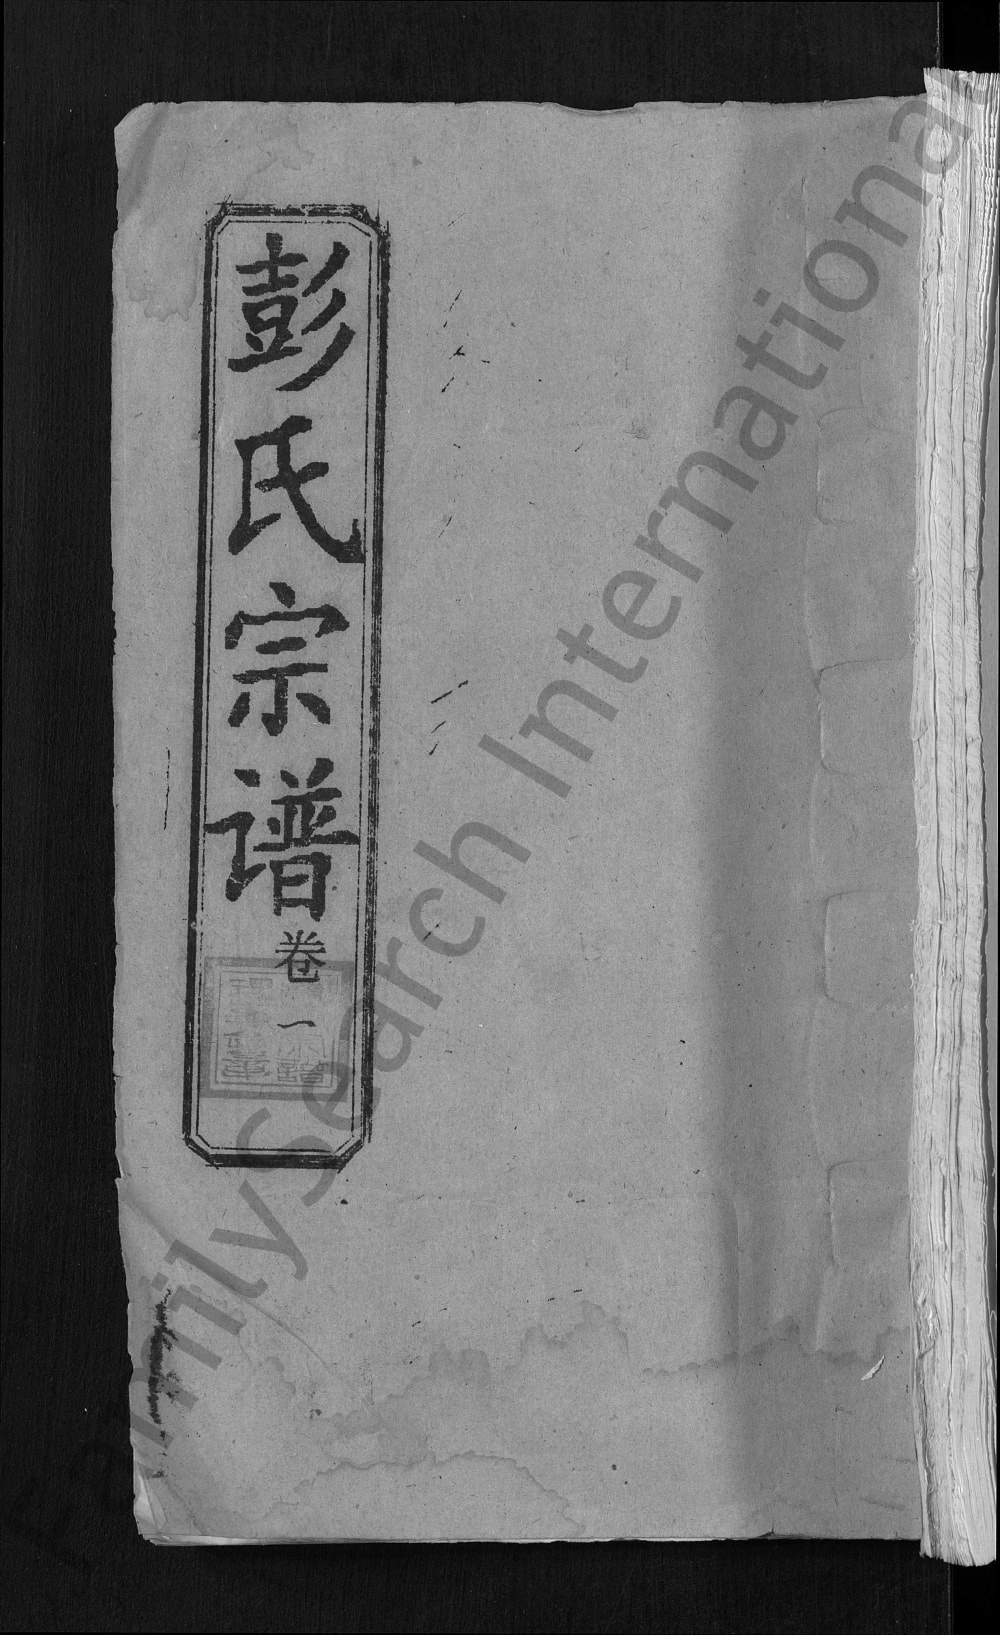 彭氏宗谱
卷一
FamilySearch International